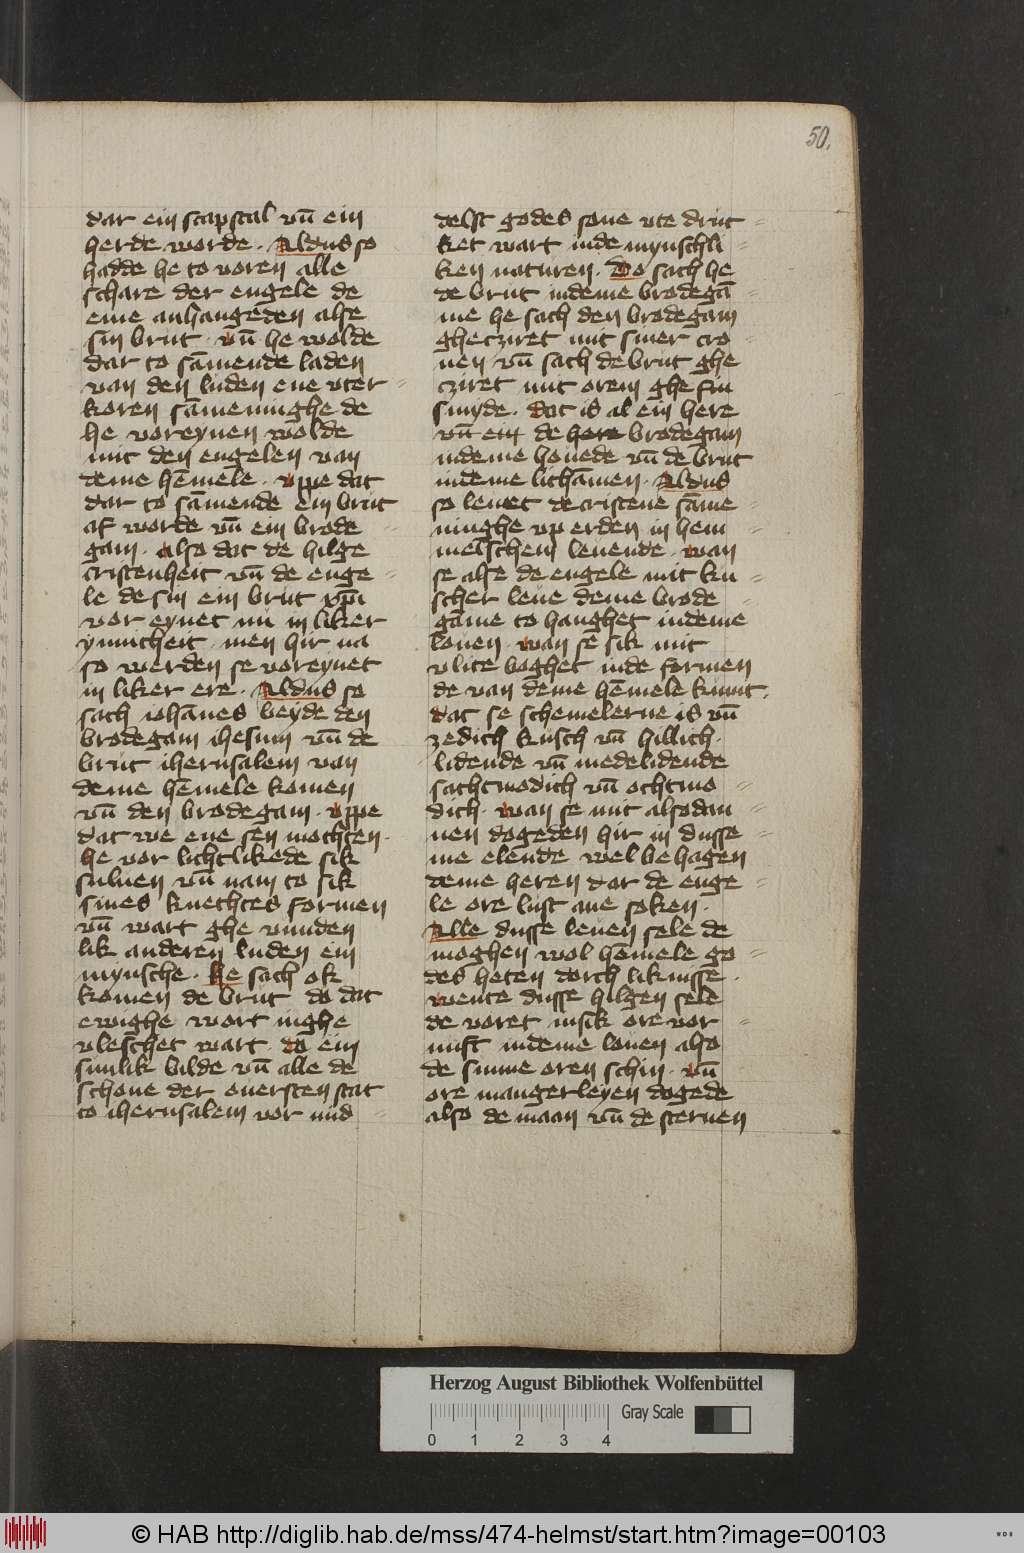 50.
dar ein scapstal vn̄ ein
herde worde. Aldus so
hadde he to voren alle
schare der engele de
eme anhangeden alse
sin brut. vn̄ he wolde
dar to sāmende laden
van den luden ene vter=
koren sāmeninghe de
he voreynen wolde
mit den engelen van
deme hēmele. vppe dat
dar to sāmende ein brut
af worde vn̄ ein brode=
gam. also dat de hilge
cristenheit vn̄ de enge=
le de sin ein brut
vor eynet nu in liker
ynnicheit. men hir na
so werden se voreynet
in liker ere. Aldus so
sach iohānes beyde den
brodegam ihesum vn̄ de
brut iherusalem van
deme hēmele komen
vn̄ den brodegam. vppe
dat we ene sen mochten.
he vor lichtlikede sik
suluen vn̄ nam to sik
sines knechtes formen
vn̄ wart ghe vunden
lik anderen luden ein
mynsche. He sach ok
komen de brut do dat
ewighe wort inghe
vleschet wart. do ein
sunlik bilde vn̄ alle de
schone der ouersten stat
to iherusalem vor mid=
delst godes sone vte druc=
ket wart inde mynschli=
ken naturen. Do sach he
de brut indeme brodegā=
me he sach den brodegam
ghecziret mit siner cro=
nen vn̄ sach de brut ghe
cziret mit orem ghe sm
smyde. dat is al ein here
vn̄ ein de here brodegam
indeme houede vn̄ de brut
indeme lichāmen. Aldus
so leuet de cristene sāme=
ninghe vp erden in hem=
melschem leuende. wan
se alse de engele mit ku=
scher leue deme brode=
gāme to hanghet indeme
louen. wan se sik mit
vlite boghet inde formen
de van deme hēmele kumt.
dat se schemelerne is vn̄
zedich kusch vn̄ hillich.
lidende vn̄ medelidende
sachtmodich vn̄ othmo=
dich. wan se mit alsodan=
nen dogeden hir in dusse=
me elende wel behagen
deme heren dar de enge=
le ore lust ane soken.
Alle dusse leuen sele de
moghen wol hēmele go=
des heten dorch liknisse.
wente dusse hilgen sele
de voret insik ore vor=
nuft indeme louen also
de sunne oren schin. vn̄
ore mangerleyen dogede
also de maan vn̄ de sternen
Herzog August Bibliothek Wolfenbüttel
Gray Scale
0 1 2 3 4
© HAB http://diglib.hab.de/mss/474-helmst/start.htm?image=00103